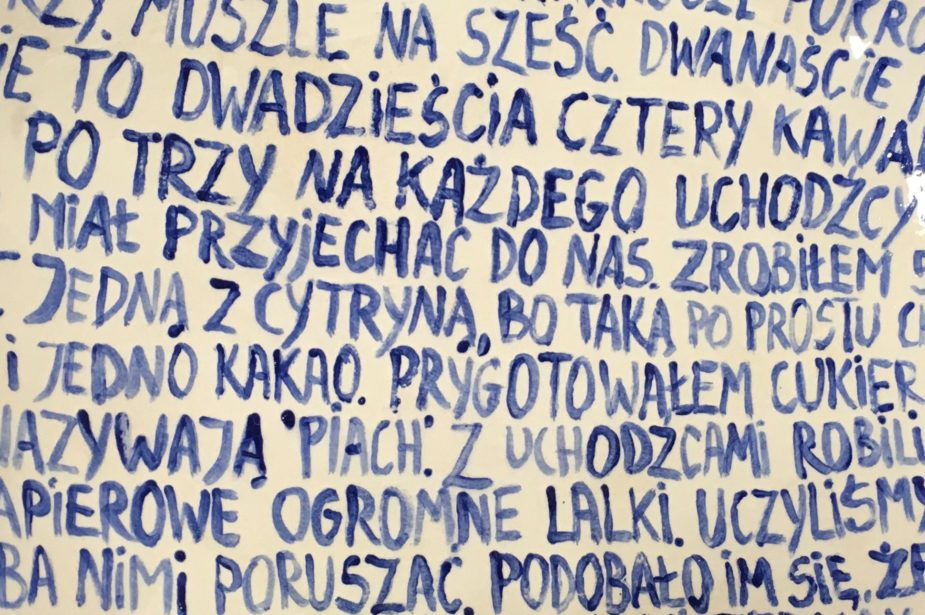 MUSZLE NA SZEŚĆ. DWANAŚCIE
TO DWADZIEŚCIA CZTERY
PO TRZY NA KAŻDEGO UCHODŹCY
MIAŁ PRZYJECHAĆ DO NAS. ZROBIŁEM
- JEDNĄ Z CYTRYNĄ, BO TAKĄ PO PROSTU
I JEDNO KAKAO. PRYGOTOWAŁEM CUKIER
NAZYWAJĄ "PIACH". Z UCHODŹCAMI ROBILI
APIEROWE OGROMNE LALKI. UCZYLIŚMY
BA NIMI PORUSZAĆ, PODOBAŁO IM SIĘ, ŻE